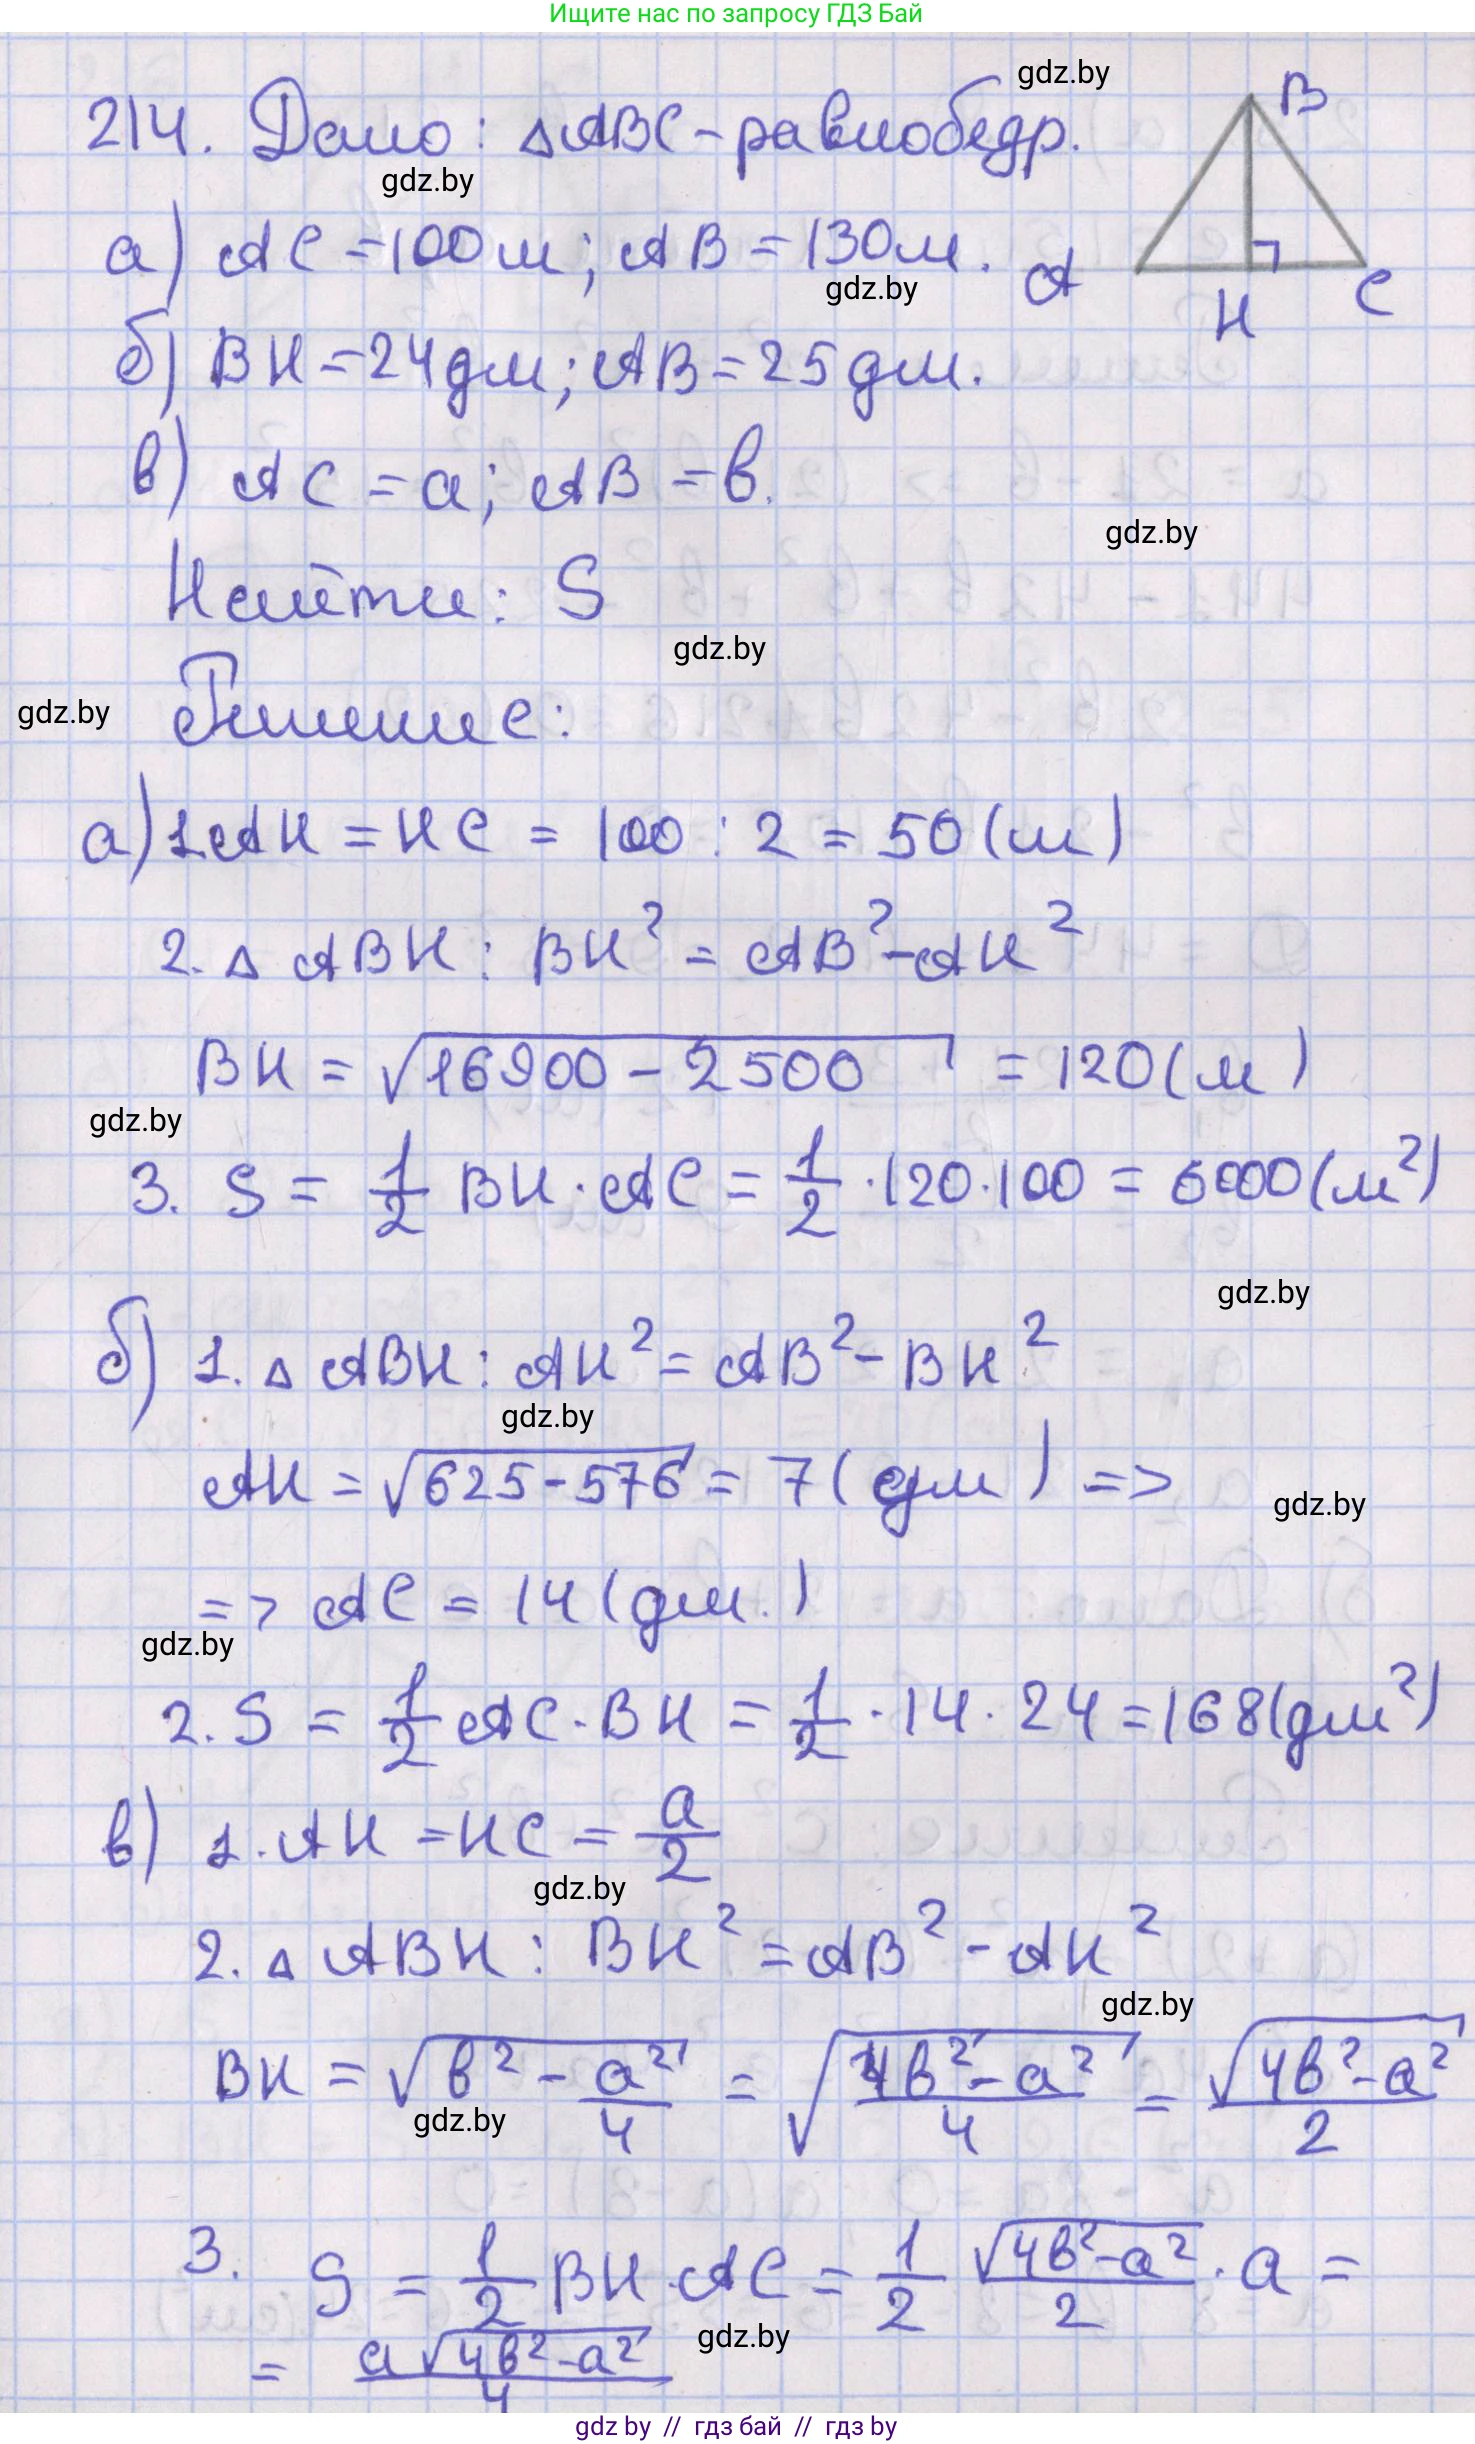 Ищите нас по запросу ГДЗ Бай
gdz.by
214. Дано: △ABC - равнобедр.
B
gdz.by
а) AC = 100 м; AB = 130 м.
gdz.by
A
H
C
б) BH = 24 дм; AB = 25 дм.
в) AC = a; AB = в.
gdz.by
Найти: S
gdz.by
Решение:
gdz.by
а) 1. AH = HC = 100 : 2 = 50 (м)
2. △ ABH : BH² = AB² - AH²
BH = √16900 - 2500 = 120 (м)
gdz.by
3. S = 1/2 BH · AC = 1/2 · 120 · 100 = 6000 (м²)
gdz.by
б) 1. △ ABH : AH² = AB² - BH²
gdz.by
AH = √625 - 576 = 7 (дм) =>
gdz.by
=> AC = 14 (дм.)
gdz.by
2. S = 1/2 AC · BH = 1/2 · 14 · 24 = 168 (дм²)
в) 1. AH = HC = a/2
gdz.by
2. △ ABH : BH² = AB² - AH²
gdz.by
BH = √в² - a²/4 = √4в² - a²/4 = √4в² - a²/2
gdz.by
3. S = 1/2 BH · AC = 1/2 √4в² - a²/2 · a =
gdz.by
= a √4в² - a²/4
gdz by // гдз бай // гдз by